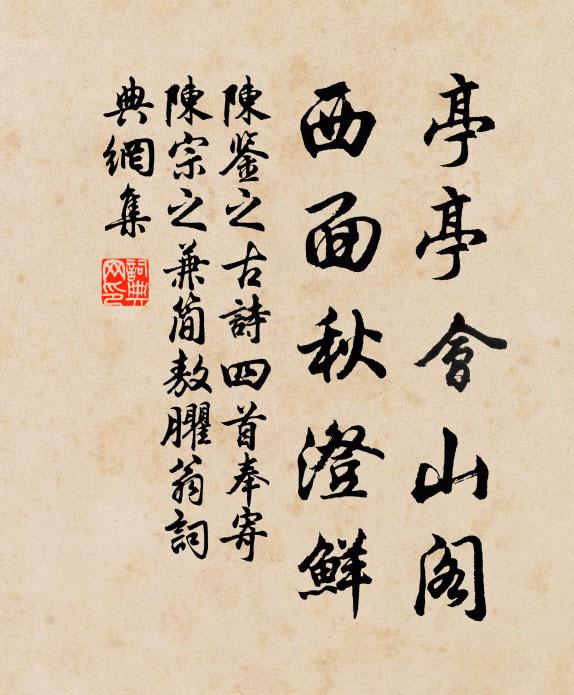 亭亭會山閣
西面秋澄鮮
陳鉴之古詩四首奉寄
陳宗之兼簡敖臞翁詞
典網集
詞典網印